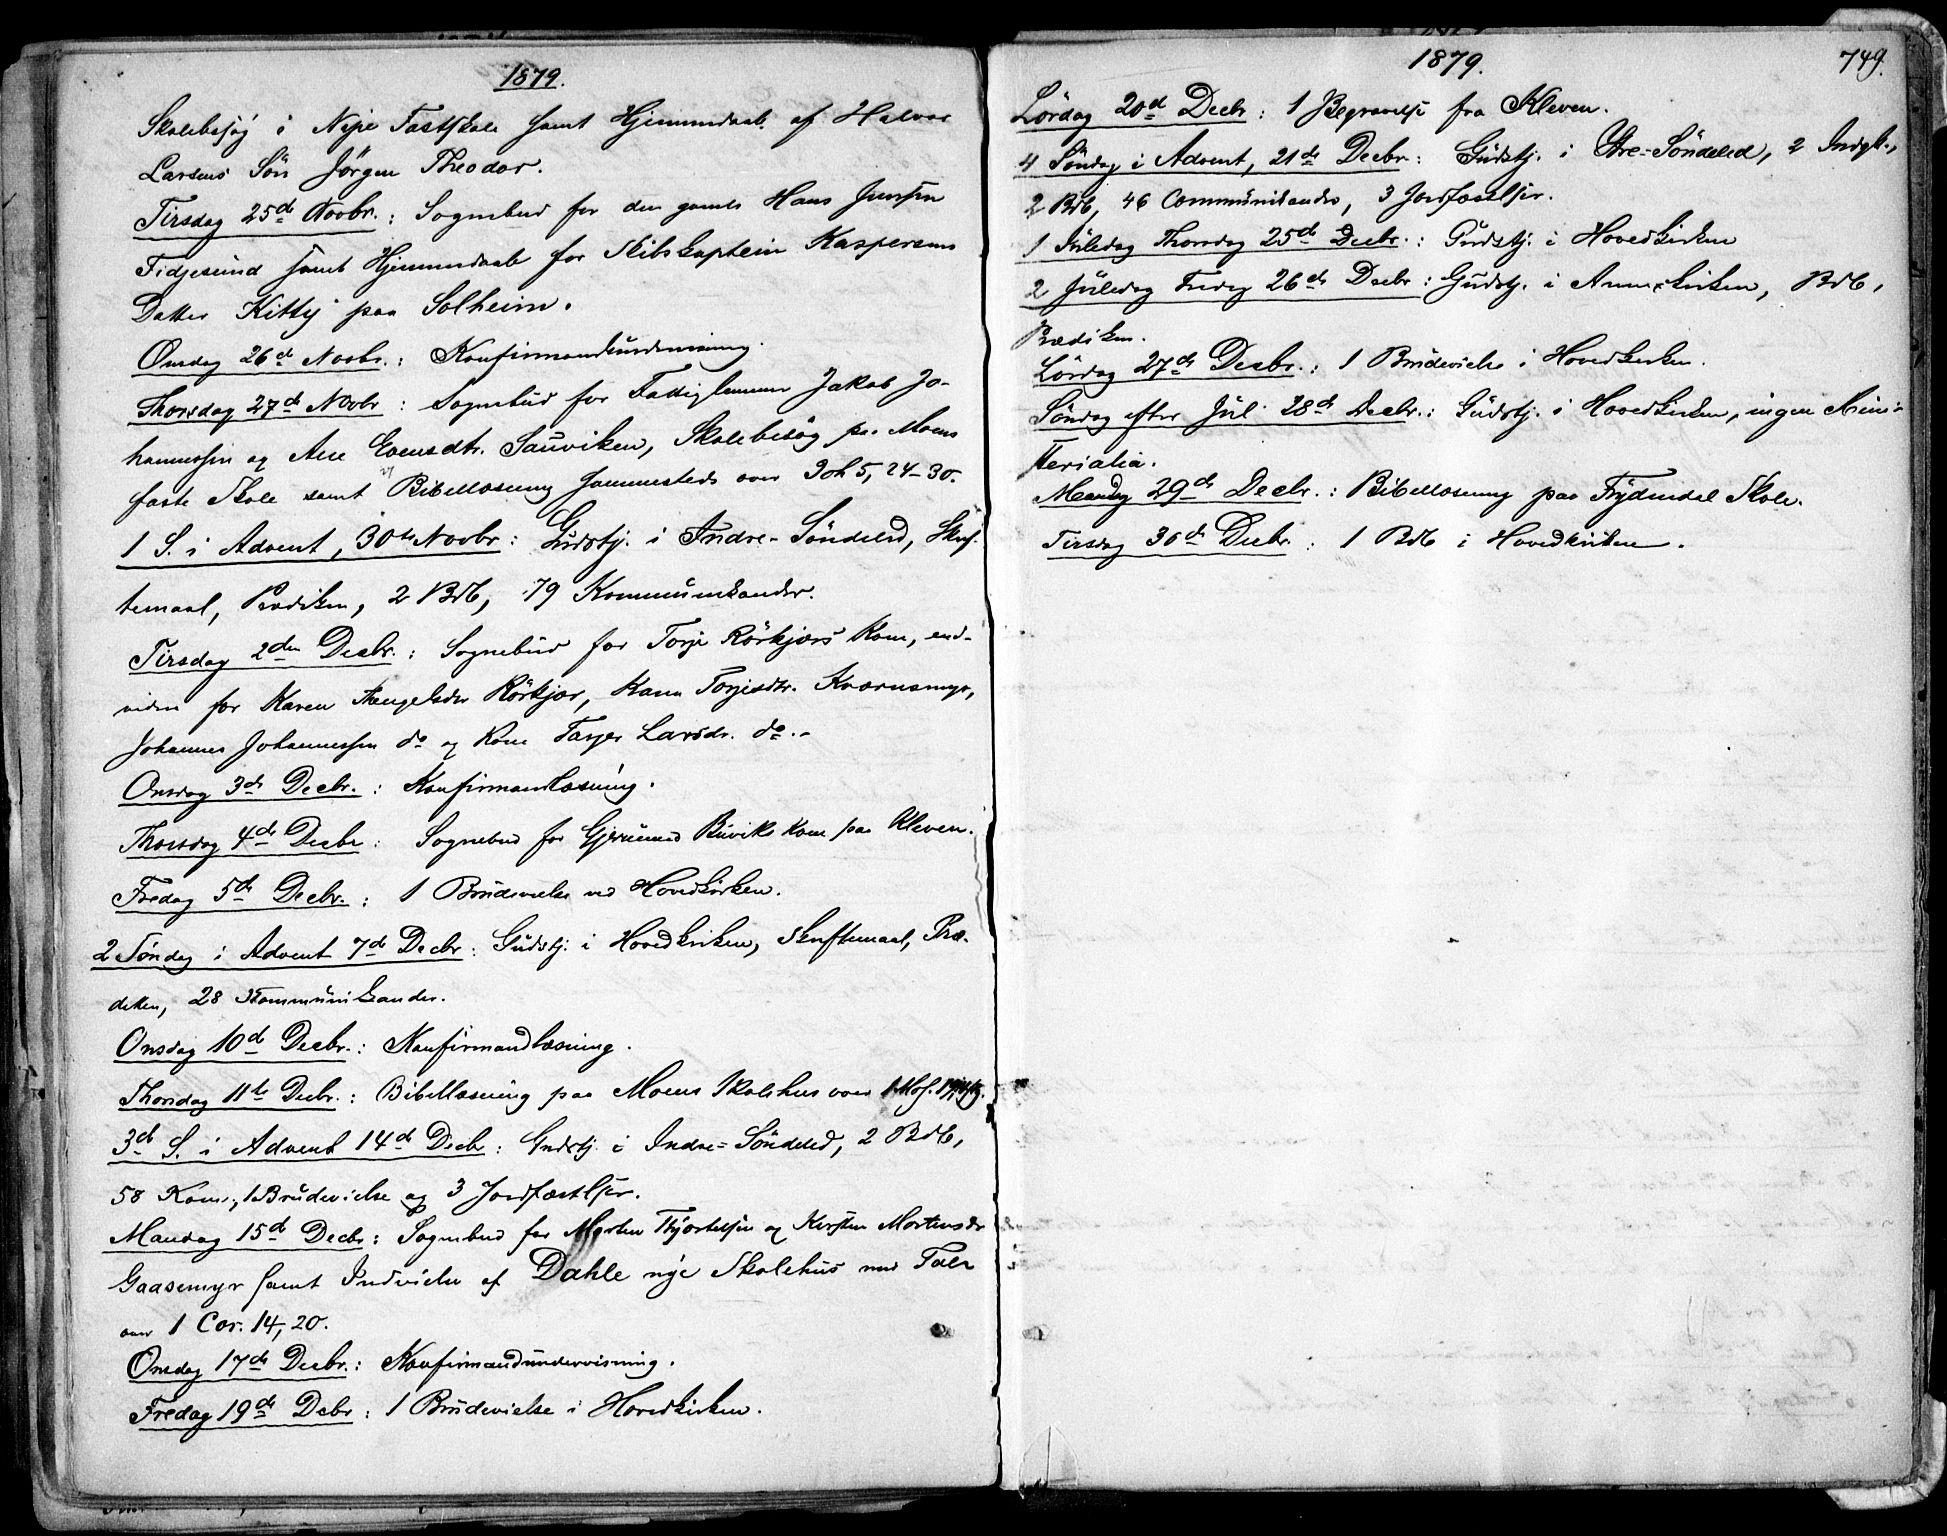 1879.
Skolebesøg i Nipe Fastskole samt Hjemmedaab af Halvor
Larsens Søn Jørgen Theodor.
Tirsdag 25de Novbr.: Sognebud for den gamle Hans Jensen
Fidjesund samt Hjemmedaab for Skibskaptein Kaspersens
Datter Kitty paa Solheim.
Onsdag 26de Novbr.: Konfirmandundervisning.
Thorsdag 27de Novbr: Sognebud for Fattiglemmer Jakob Jo-
hannessen og Ane Evensdtr. Sauviken, Skolebesøg paa Moens
faste Skole samt Bibellæsning sammesteds over Joh 5, 24-30.
1 S. i Advent, 30te Novbr: Gudstj. i Indre-Søndeled, Skrif-
temaal, Prædiken, 2 Bdb, 79 Kommunikander.
Tirsdag 2den Decbr.: Sognebud for Torje Rörkjærs Kone, end-
videre for Karen Rörkjær, Karen Torjesdtr. Kværnsmyr,
Johannes Johannessen do og Kone Larsdr. do.-
Onsdag 3de Decbr.: Konfirmandlæsning.
Thorsdag 4de Decbr: Sognebud for Gjerumd Buviks Kone paa Kleven.
Fredag 5de Decbr.: 1 Brudevielse ved Hovedkirken.
2 Søndag i Advent 7de Decbr: Gudstj. i Hovedkirken, Skriftemaal, Præ-
diken, 28 Kommunikander.
Onsdag 10de Decbr.: Konfirmandlæsning.
Thorsdag 11te Decbr.: Bibellæsning paa Moens Skolehus over 1 Mos.
3de S. i Advent 14de Decbr: Gudstj. i Indre=Søndeled, 2 Bdb,
58 Kom., 1 Brudevielse og 3 Jordfæstelser.
Mandag 15de Decbr: Sognebud for Morten Kjostelsen og Kirsten Mortensdr
Gaasemyr samt Indvielse af Dahle nye Skolehus med Tale
over 1 Cor. 14, 20.
Onsdag 17de Decbr.: Konfirmandundervisning.
Fredag 19de Debr: 1 Brudevielse i Hovedkirken.
1879.
749.
Lördag 20de Decbr: 1 Begravelse fra Kleven.
4 Søndag i Advent, 21de Decbr: Gudstj. i Ytre=Søndeled, 2 Indgl.,
2 Bdb, 46 Communikander, 3 Jordfæstelser.
1 Juledag Thorsdag 25de Decbr.: Gudstj. i Hovedkirken
2 Juledag Fredag 26de Decbr: Gudstj. i Annexkirken, Bdb,
Prædiken.
Lördag 27de Decbr.: 1 Brudevielse i Hovedkirken.
Søndag efter Jul 28de Decbr.: Gudstj. i Hovedkirken, ingen Mini-
sterialia.
Mandag 29de Decbr.: Bibellæsning paa Frydendal Skole.
Tirsdag 30de Decbr.: 1 Bdb i Hovedkirken.